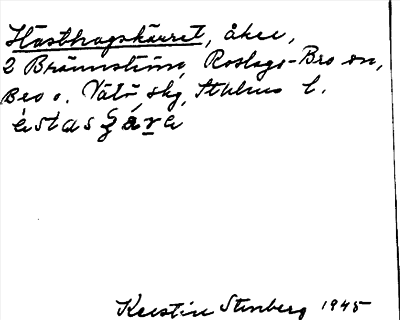 Hästhagskärret, åker,
2 Brännstina, Roslags-Bro sn,
Bro o. Vätö skg, Sthlms l.
Kerstin Stenberg 1945